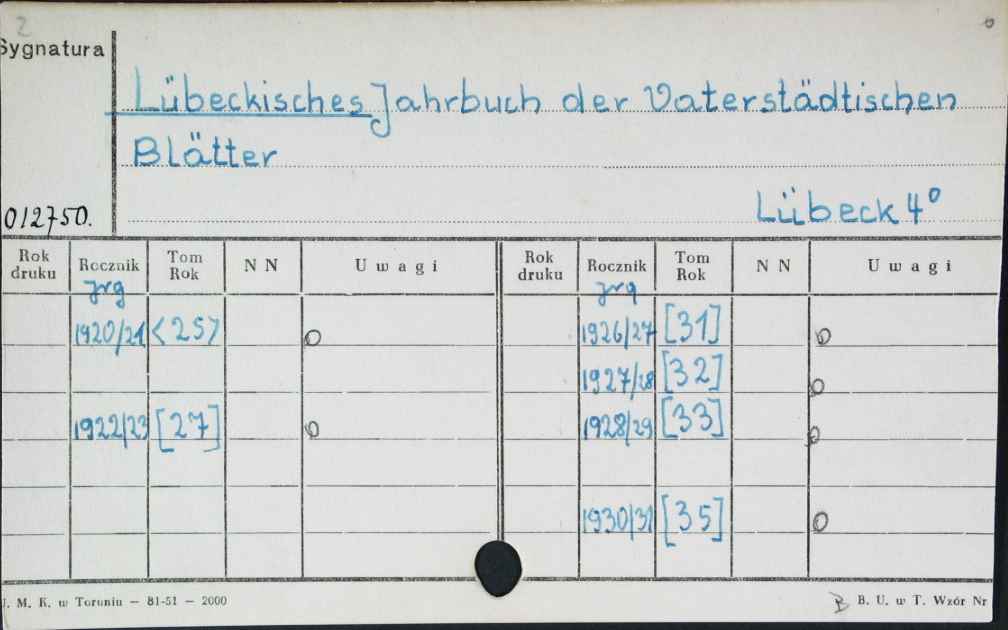 2
Sygnatura
Lübeckisches Jahrbuch der Vaterstädtischen
Blätter
012750.
Lübeck 4°
Rok druku Rocznik Tom Rok N N Uwagi Rok druku Rocznik Tom Rok N N Uwagi
Jrg Jrg
1920/21 <25> 0 1926/27 [31] 0
1927/28 [32] 0
1922/23 [27] 0 1928/29 [33] 0
1930/31 [35] 0
. M. K. w Toruniu — 81-51 — 2000 B. U. w T. Wzór Nr